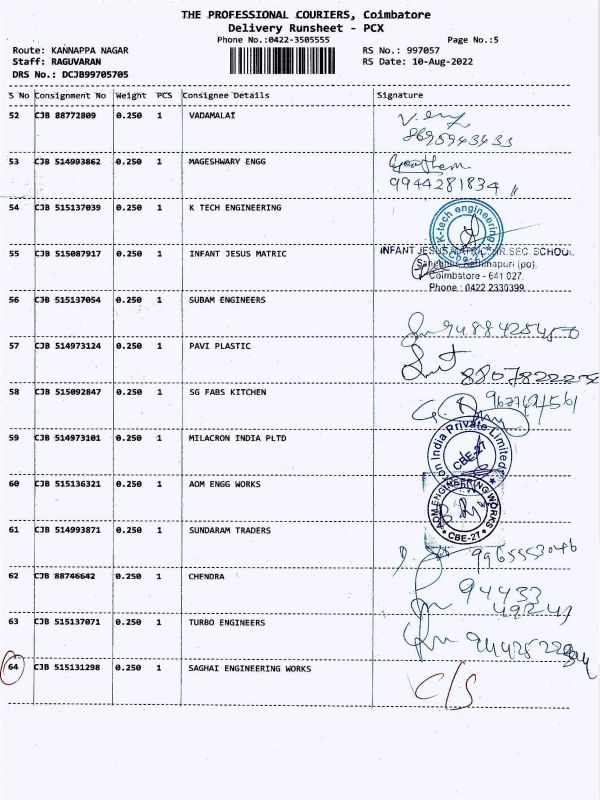 THE PROFESSIONAL COURIERS, Coimbatore
Delivery Runsheet - PCX
Phone No.:0422-3505555
Page No.:5
Route: KANNAPPA NAGAR
RS No.: 997057
Staff: RAGUVARAN
RS Date: 10-Aug-2022
DRS No.: DCJB99705705
S No Consignment No Weight PCS Consignee Details Signature
52 CJB 88772809 0.250 1 VADAMALAI
8695943433
53 CJB 514993862 0.250 1 MAGESHWARY ENGG
9944281834
54 CJB 515137039 0.250 1 K TECH ENGINEERING
K-tech engineering
CBE
55 CJB 515087917 0.250 1 INFANT JESUS MATRIC
INFANT JESUS MATRIC.HR.SEC. SCHOOL
Rathinapuri (po),
Coimbatore - 641 027.
Phone : 0422 2330399.
56 CJB 515137054 0.250 1 SUBAM ENGINEERS
57 CJB 514973124 0.250 1 PAVI PLASTIC
58 CJB 515092847 0.250 1 SG FABS KITCHEN
59 CJB 514973101 0.250 1 MILACRON INDIA PLTD
on India Private Limited
CBE-27
60 CJB 515136321 0.250 1 AOM ENGG WORKS
AOM ENGINEERING WORKS
CBE-27
61 CJB 514993871 0.250 1 SUNDARAM TRADERS
62 CJB 88746642 0.250 1 CHENDRA
94433
49249
63 CJB 515137071 0.250 1 TURBO ENGINEERS
64 CJB 515131298 0.250 1 SAGHAI ENGINEERING WORKS
C/S